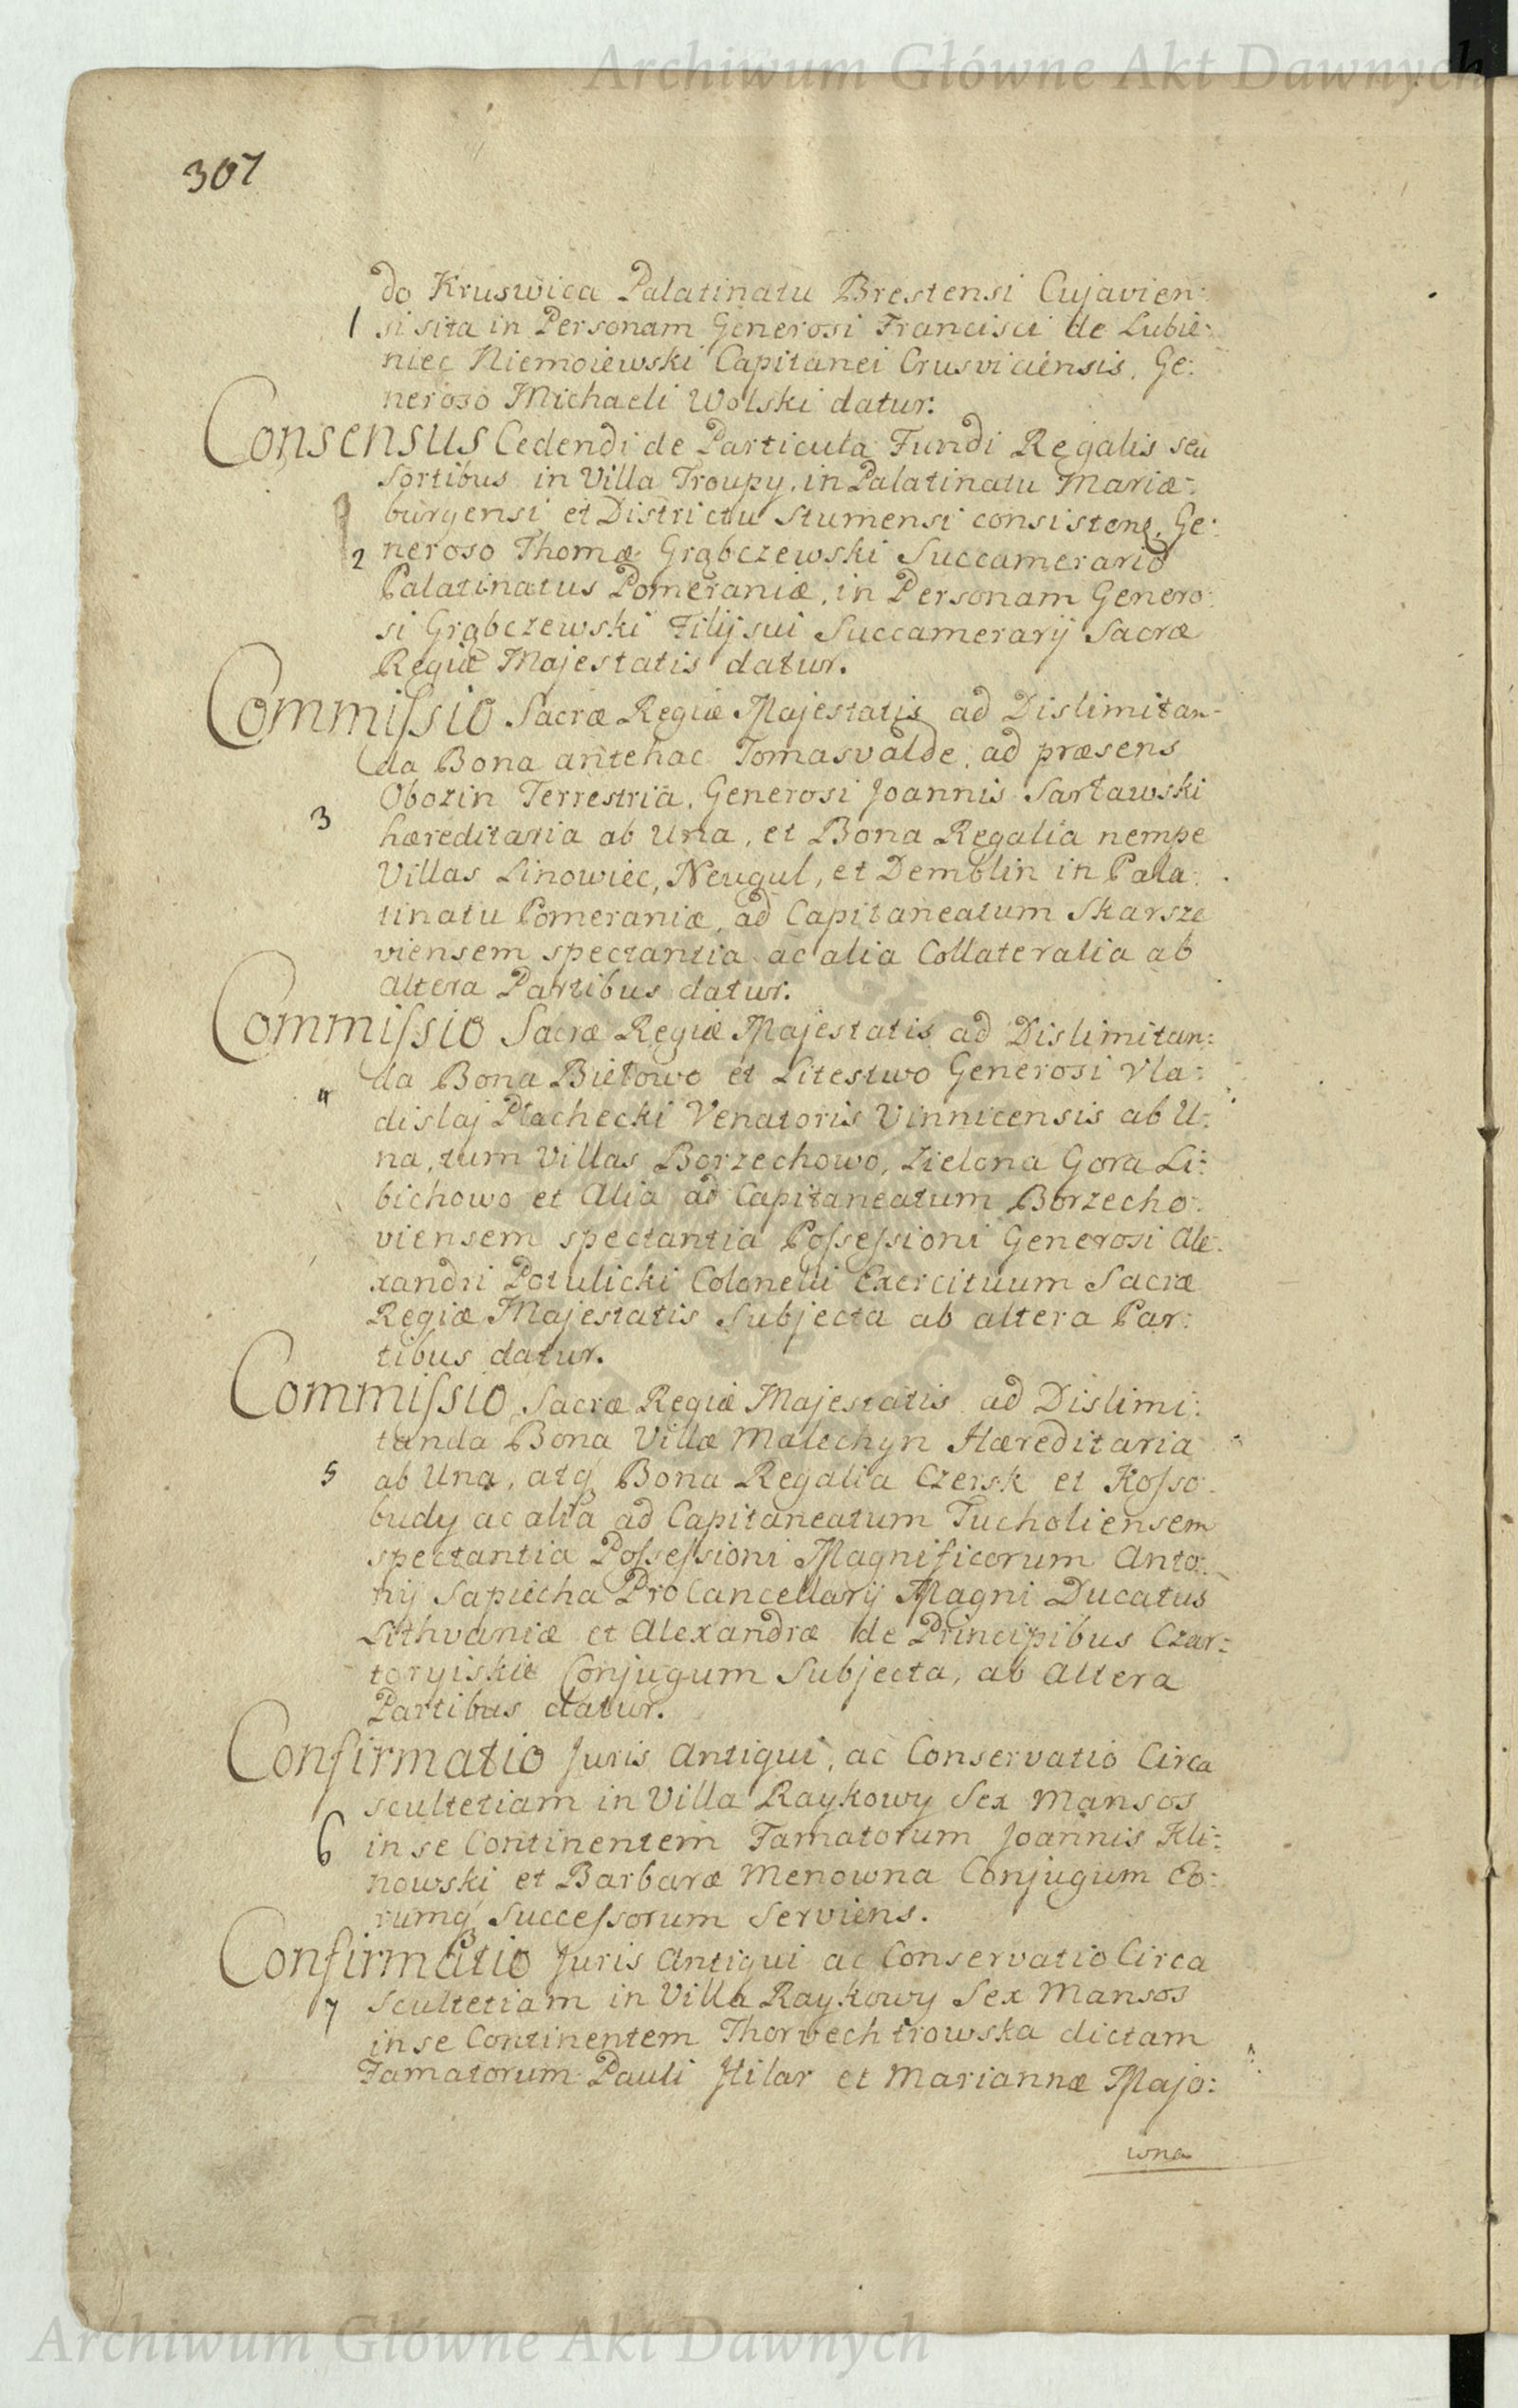 Archiwum Główne Akt Dawnych
307
do Kruswica Palatinatu Brestensi Cujavien:
1 si sita in Personam Generosi Francisci de Lubie:
niec Niemoiewski Capitanei Crusviciensis, Ge:
neroso Michaeli Wolski datur.
Consensus Cedendi de Particula Fundi Regalis seu
sortibus in Villa Troupy, in Palatinatu Mariæ:
burgensi et Districtu Stumensi consisten, Ge:
2 neroso Thomæ Grąbczewski Succamerario
Palatinatus Pomeraniæ, in Personam Genero:
si Grąbczewski Filij sui Succamerarij Sacræ
Regiæ Majestatis datur.
Commissio Sacræ Regiæ Majestatis ad Dislimitan:
da Bona antehac Tomasvalde, ad præsens
Obozin Terrestria, Generosi Joannis Sartawski
3 hæreditaria ab Una, et Bona Regalia nempe
Villas Linowiec, Neugul, et Demblin in Pala:
tinatu Pomeraniæ, ad Capitaneatum Skarsze
viensem spectantia ac alia Collateralia ab
altera Partibus datur.
Commissio Sacræ Regiæ Majestatis ad Dislimitan:
da Bona Bietowo et Litestwo Generosi Vla:
4 dislaj Płachecki Venatoris Vinnicensis ab U:
na, tum Villas Borzechowo, Zielona Gora Li:
bichowo et Alia ad Capitaneatum Borzecho:
viensem spectantia Possessioni Generosi Ale:
xandri Potulicki Colonelli Exercituum Sacræ
Regiæ Majestatis Subjecta ab altera Par:
tibus datur.
Commissio Sacræ Regiæ Majestatis ad Dislimi:
tanda Bona Villæ Malechyn Hæreditaria
5 ab Una, atq Bona Regalia Czersk et Kosso:
budy ac alia ad Capitaneatum Tucholiensem
spectantia Possessioni Magnificorum Anto:
nij Sapiecha ProCancellarij Magni Ducatus
Lithvaniæ et Alexandræ de Principibus Czar:
toryiskie Conjugum Subjecta, ab Altera
Partibus datur.
Confirmatio Juris Antiqui, ac Conservatio Circa
scultetiam in Villa Raykowy Sex Mansos
6 in se Continentem Famatorum Joannis Kli:
nowski et Barbaræ Menowna Conjugum Eo:
rumq Successorum Serviens.
Confirmatio Juris Antiqui ac Conservatio Circa
7 Scultetiam in Villa Raykowy Sex Mansos
in se Continentem Thorvechtrowska dictam
Famatorum Pauli Hilar et Mariannæ Majo:
wna
Archiwum Główne Akt Dawnych